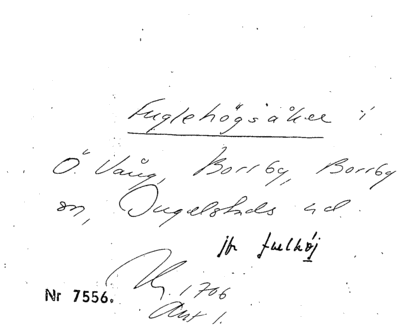 Fuglehögsåker i
Ö. Vång, Borrby, Borrby
sn, Ingelstads hd.
jfr fulhöj
1706
Nr 7556.
Akt 1.